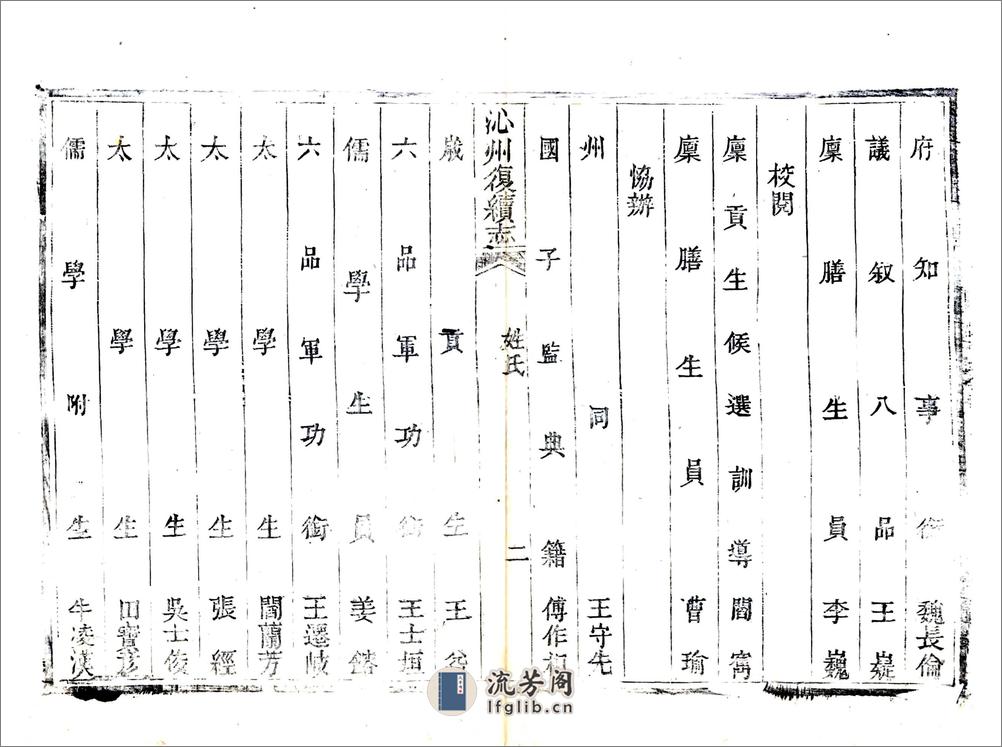 府知事銜魏長倫
議叙八品王嶷
廩膳生員李巍
校閱
廩貢生候選訓導閻寗
廩膳生員曹瑜
協辦
州同王守先
國子監典籍傅作
沁州復續志
姓氏
二
歲貢生王
六品軍功銜王士垣
儒學生員姜
六品軍功銜王遷岐
太學生閻蘭芳
太學生張經
太學生吳士俊
太學生田寶
儒學附生牛凌漢
流芳阁
lfglib.cn